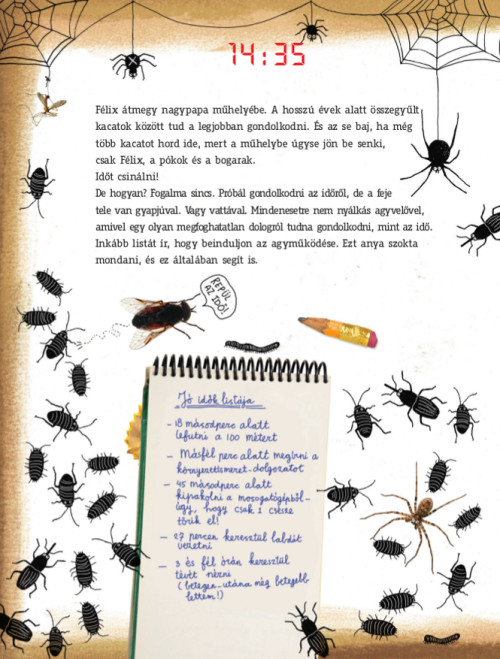 14:35
Félix átmegy nagypapa műhelyébe. A hosszú évek alatt összegyűlt
kacatok között tud a legjobban gondolkodni. És az se baj, ha még
több kacatot hord ide, mert a műhelybe úgyse jön be senki,
csak Félix, a pókok és a bogarak.
Időt csinálni!
De hogyan? Fogalma sincs. Próbál gondolkodni az időről, de a feje
tele van gyapjúval. Vagy vattával. Mindenesetre nem nyálkás agyvelővel,
amivel egy olyan megfoghatatlan dologról tudna gondolkodni, mint az idő.
Inkább listát ír, hogy beinduljon az agyműködése. Ezt anya szokta
mondani, és ez általában segít is.
REPÜL
AZ IDŐ!
Jó idők listája
- 18 másodperc alatt
lefutni a 100 métert
- Másfél perc alatt megírni a
környezetismeret-dolgozatot
- 45 másodperc alatt
kipakolni a mosogatógépből -
úgy, hogy csak 1 csésze
törik el!
- 27 percen keresztül labdát
vezetni
- 3 és fél órán keresztül
tévét nézni
(betegen - utána még betegebb
lettem!)